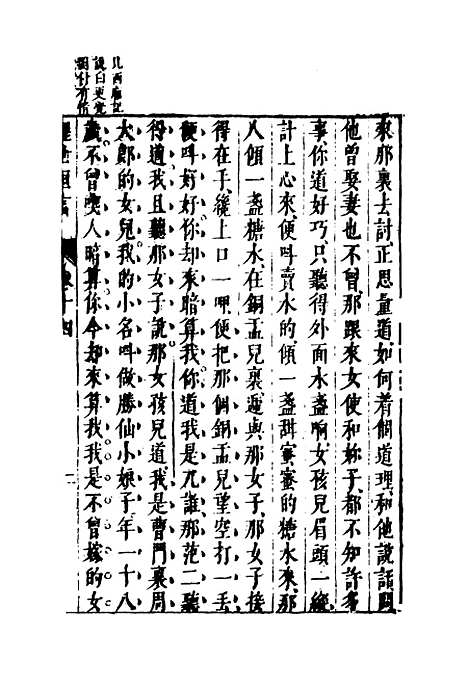 來那裏去討正思量道如何着個道理和他説話問
他曾娶妻也不曾那跟來女使和妳子都不知許多
事你道好巧只聽得外面水盞响女孩兒眉頭一縱
計上心來便呌賣水的傾一盞甜蜜蜜的糖水來那
人傾一盞糖水在銅盂兒裏遞與那女子那女子接
得在手纔上口一呷便把那個銅盂兒望空打一丢
便呌好好你却來暗算我你道我是兀誰那范二聽
得道我且聽那女子説那女孩兒道我是曹門裏周
大郎的女兒我的小名呌做勝仙小娘子年一十八
歲不曾喫人暗算你今却來算我我是不曾嫁的女
醒世恒言
十四
二
説白更覺